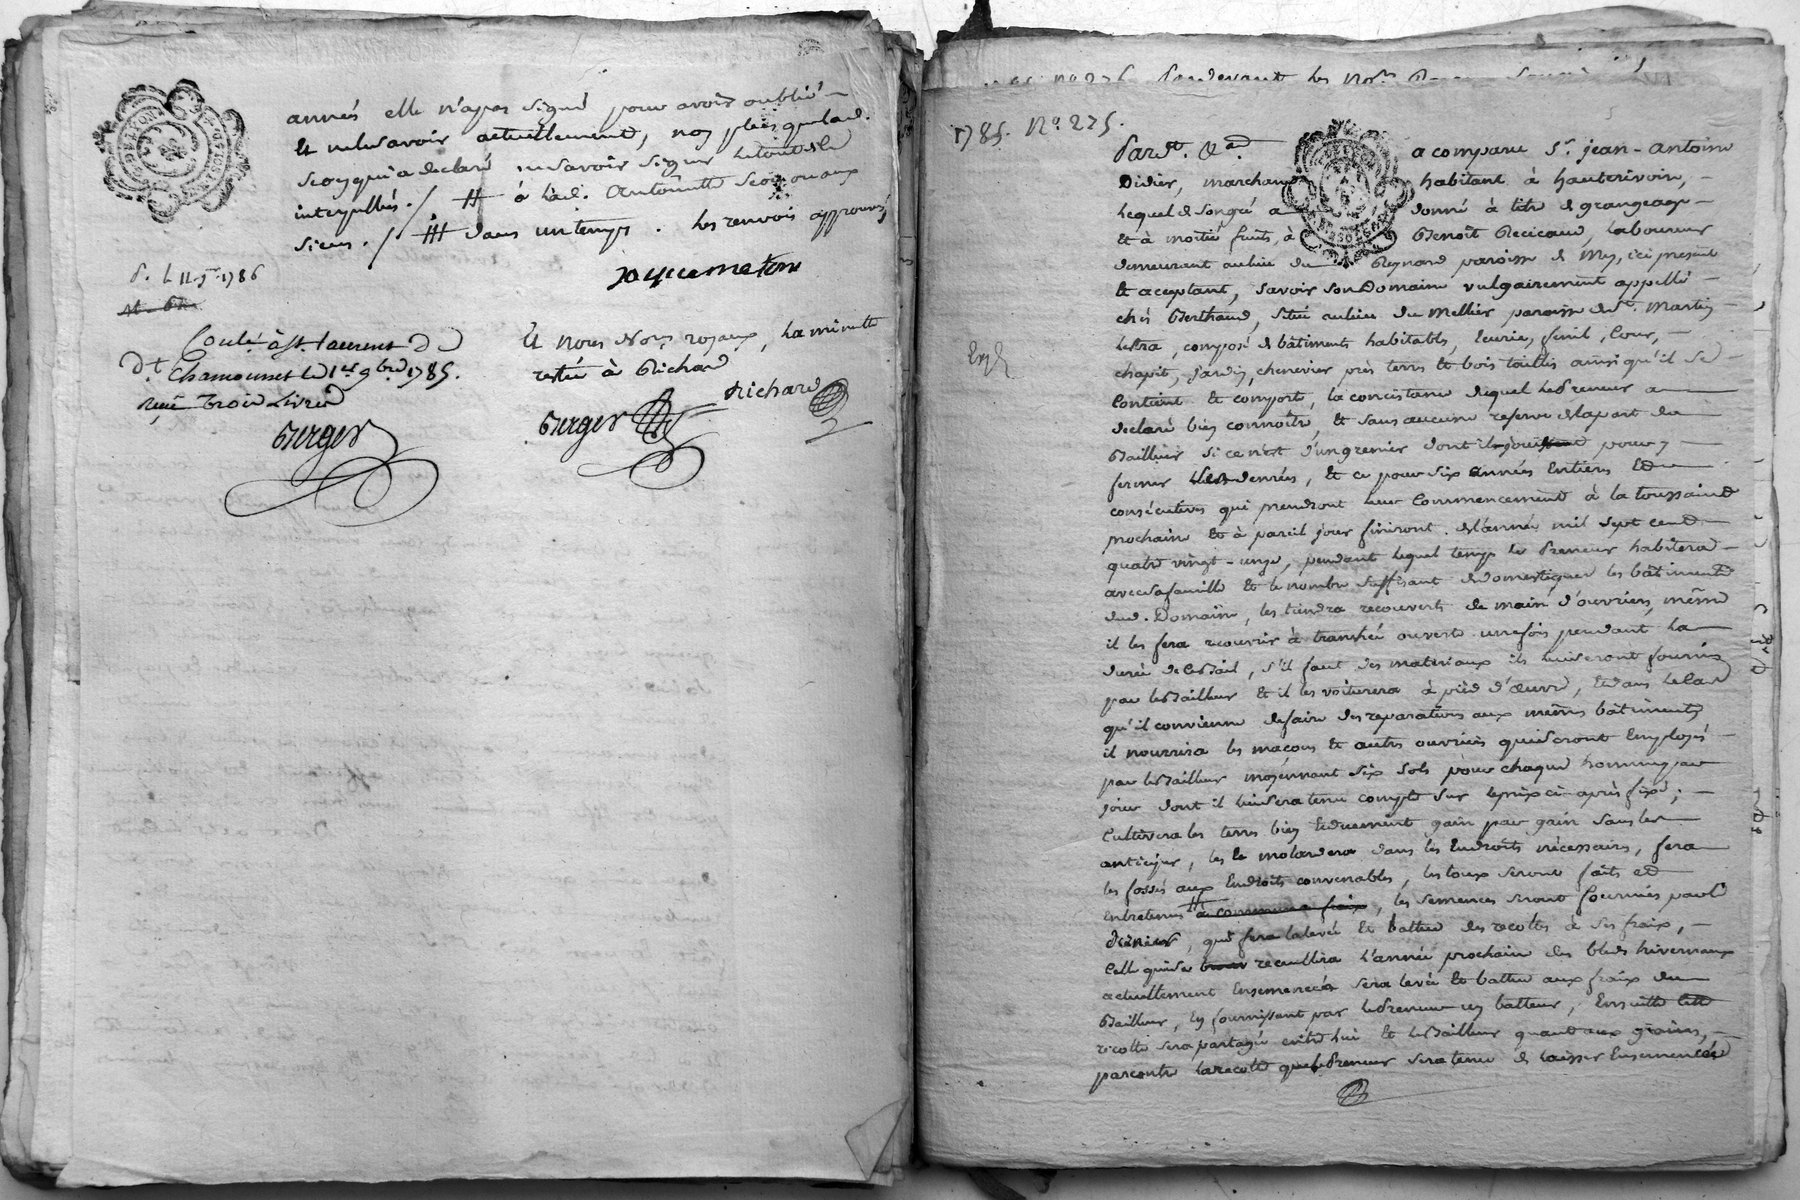 années elle n'a pas signé pour avoir oublié
et ne le savoir actuellement, non plus que lad.
Scoy qui a declaré ne savoir signer de tout
interpellés. / # à lad. Antoinette
sieur. / ## dans un temps. les renvois approuvés
jacquemeton
d. L 11 1786
Conlé à St. Laurent D
D.t Chamousset le 1er 9bre 1785.
reçu trois livres
Berger
Et Nous Nores royaux, la minutte
restée à Richard
Richard
Berger
nº 276 Pardevant les No.res
1785. Nº 275.
Pard.t &a.
a comparu Sr. jean-antoine
Didier, marchand habitant à hauterivoire,
lequel de son gré a donné à titre de grangeage
et à moitié fruits, à Benoît Recicaud, laboureur
demeurant au lieu du Reynard paroisse de Mey, ici present
et acceptant, savoir son Domaine vulgairement appellé
chés Berthaud, situé au lieu du Mellier paroisse de St. Martin
Lestra, composé de bâtiments habitables, Ecuries, fenil, Cour,
Exp.
chapit, jardin, chenevier près terres et bois taillis ainsi qu'il se
Contient et comporte, la concistance duquel le Preneur a
declaré bien connoître, et sans aucune reserve de la part du
Bailleur si ce n'est d'un grenier dont il jouit pour y
fermer denrées, et ce pour six années Entieres et
consécutives qui prendront leur Commencement à la toussaint
prochaine et à pareil jour finiront de l'année mil sept cent
quatre vingt-onze, pendant lequel temps le Preneur habitera
avec sa famille et le nombre suffisant de domestiques les bâtiments
dud. Domaine, les tiendra recouverts de main d'ouvriers, même
il les fera recouvrir à tranchée ouverte une fois pendant la
durée de ce Bail, s'il faut des materiaux ils lui seront fournis
par le Bailleur et il les voiturera à pied d'œuvre, Et dans le Cas
qu'il convienne de faire des reparations aux mêmes bâtiments
il nourrira les maçons et autres ouvriers qui seront Employés
par le Bailleur moyennant six sols pour chaque homme par
jour dont il lui sera tenu compte sur le prix ci-après fixé;
Cultivera les terres bien et duement gain par gain sans les
anticiper, les dans les Endroits nécessaires, fera
les fossés aux Endroits convenables, les toux seront faits et
entretenus # à commun frais, les semences seront fournies par le
Preneur, qui fera la levée et battue des recoltes à ses fraix,
Celle qui se recueillira l'année prochaine des bleds hivernaux
actuellement Ensemencés sera levée et battue aux fraix du
Bailleur, En fournissant par le Preneur un batteur, Ensuitte cette
recolte sera partagée entre lui et le Bailleur quant aux grains,
parcontre la recolte que le Preneur sera tenu de laisser Ensemencée